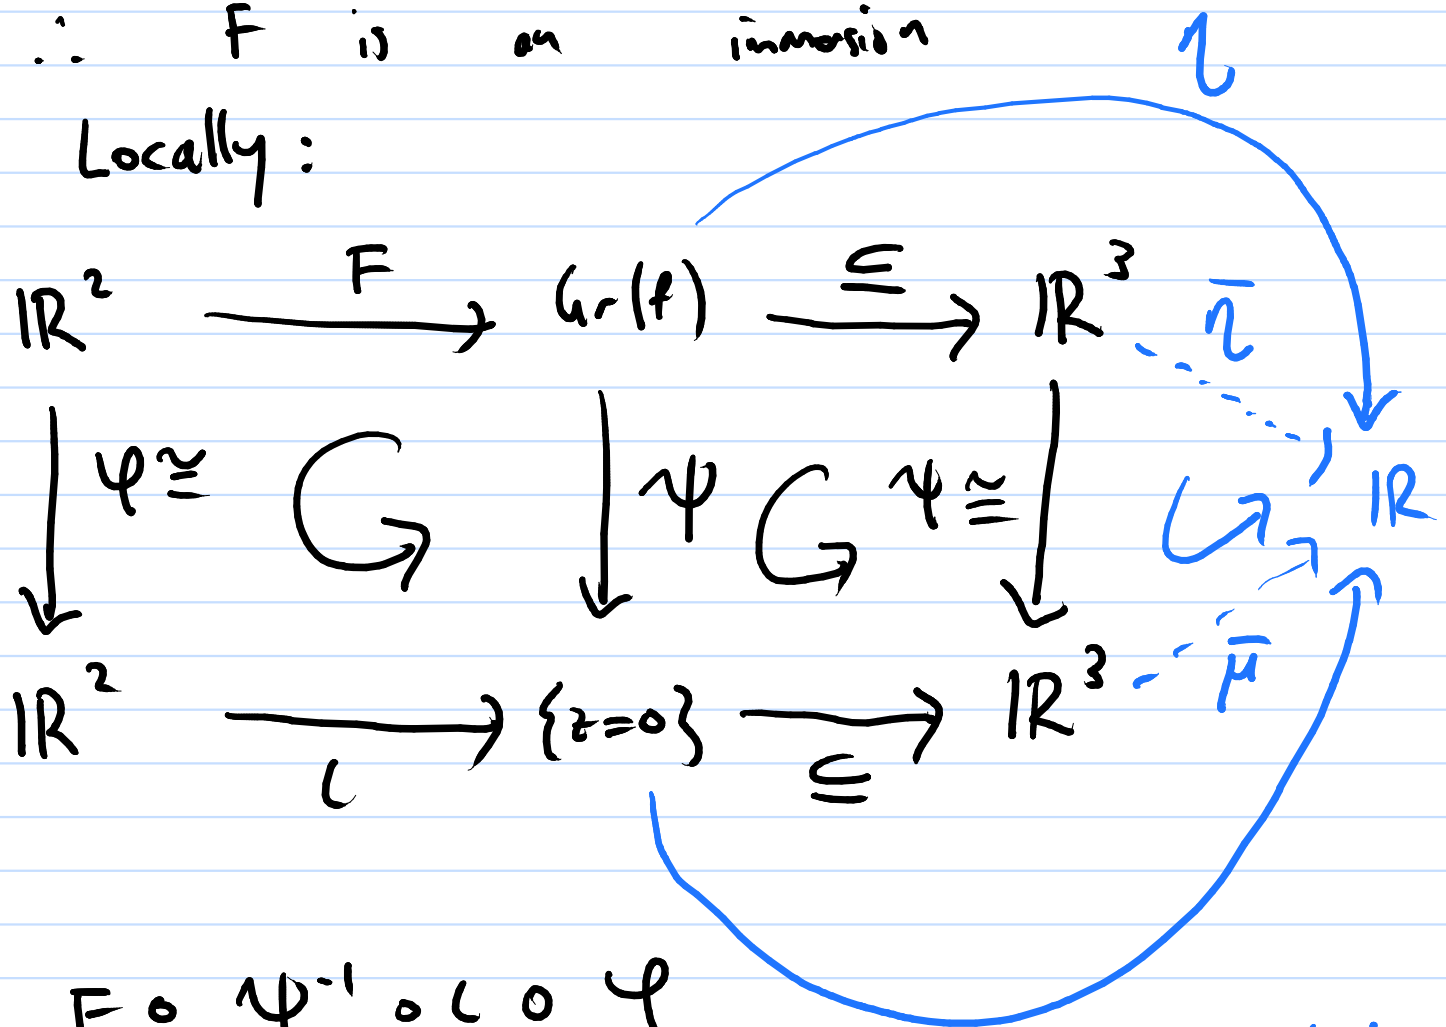 ∴ F is an immersion
η
Locally:
ℝ² F Gr(f) ⊆ ℝ³ η̄
φ ≅ ψ ψ ≅ ℝ
ℝ² ι {z=0} ⊆ ℝ³ μ̄
F ∘ ψ⁻¹ ∘ ι ∘ φ